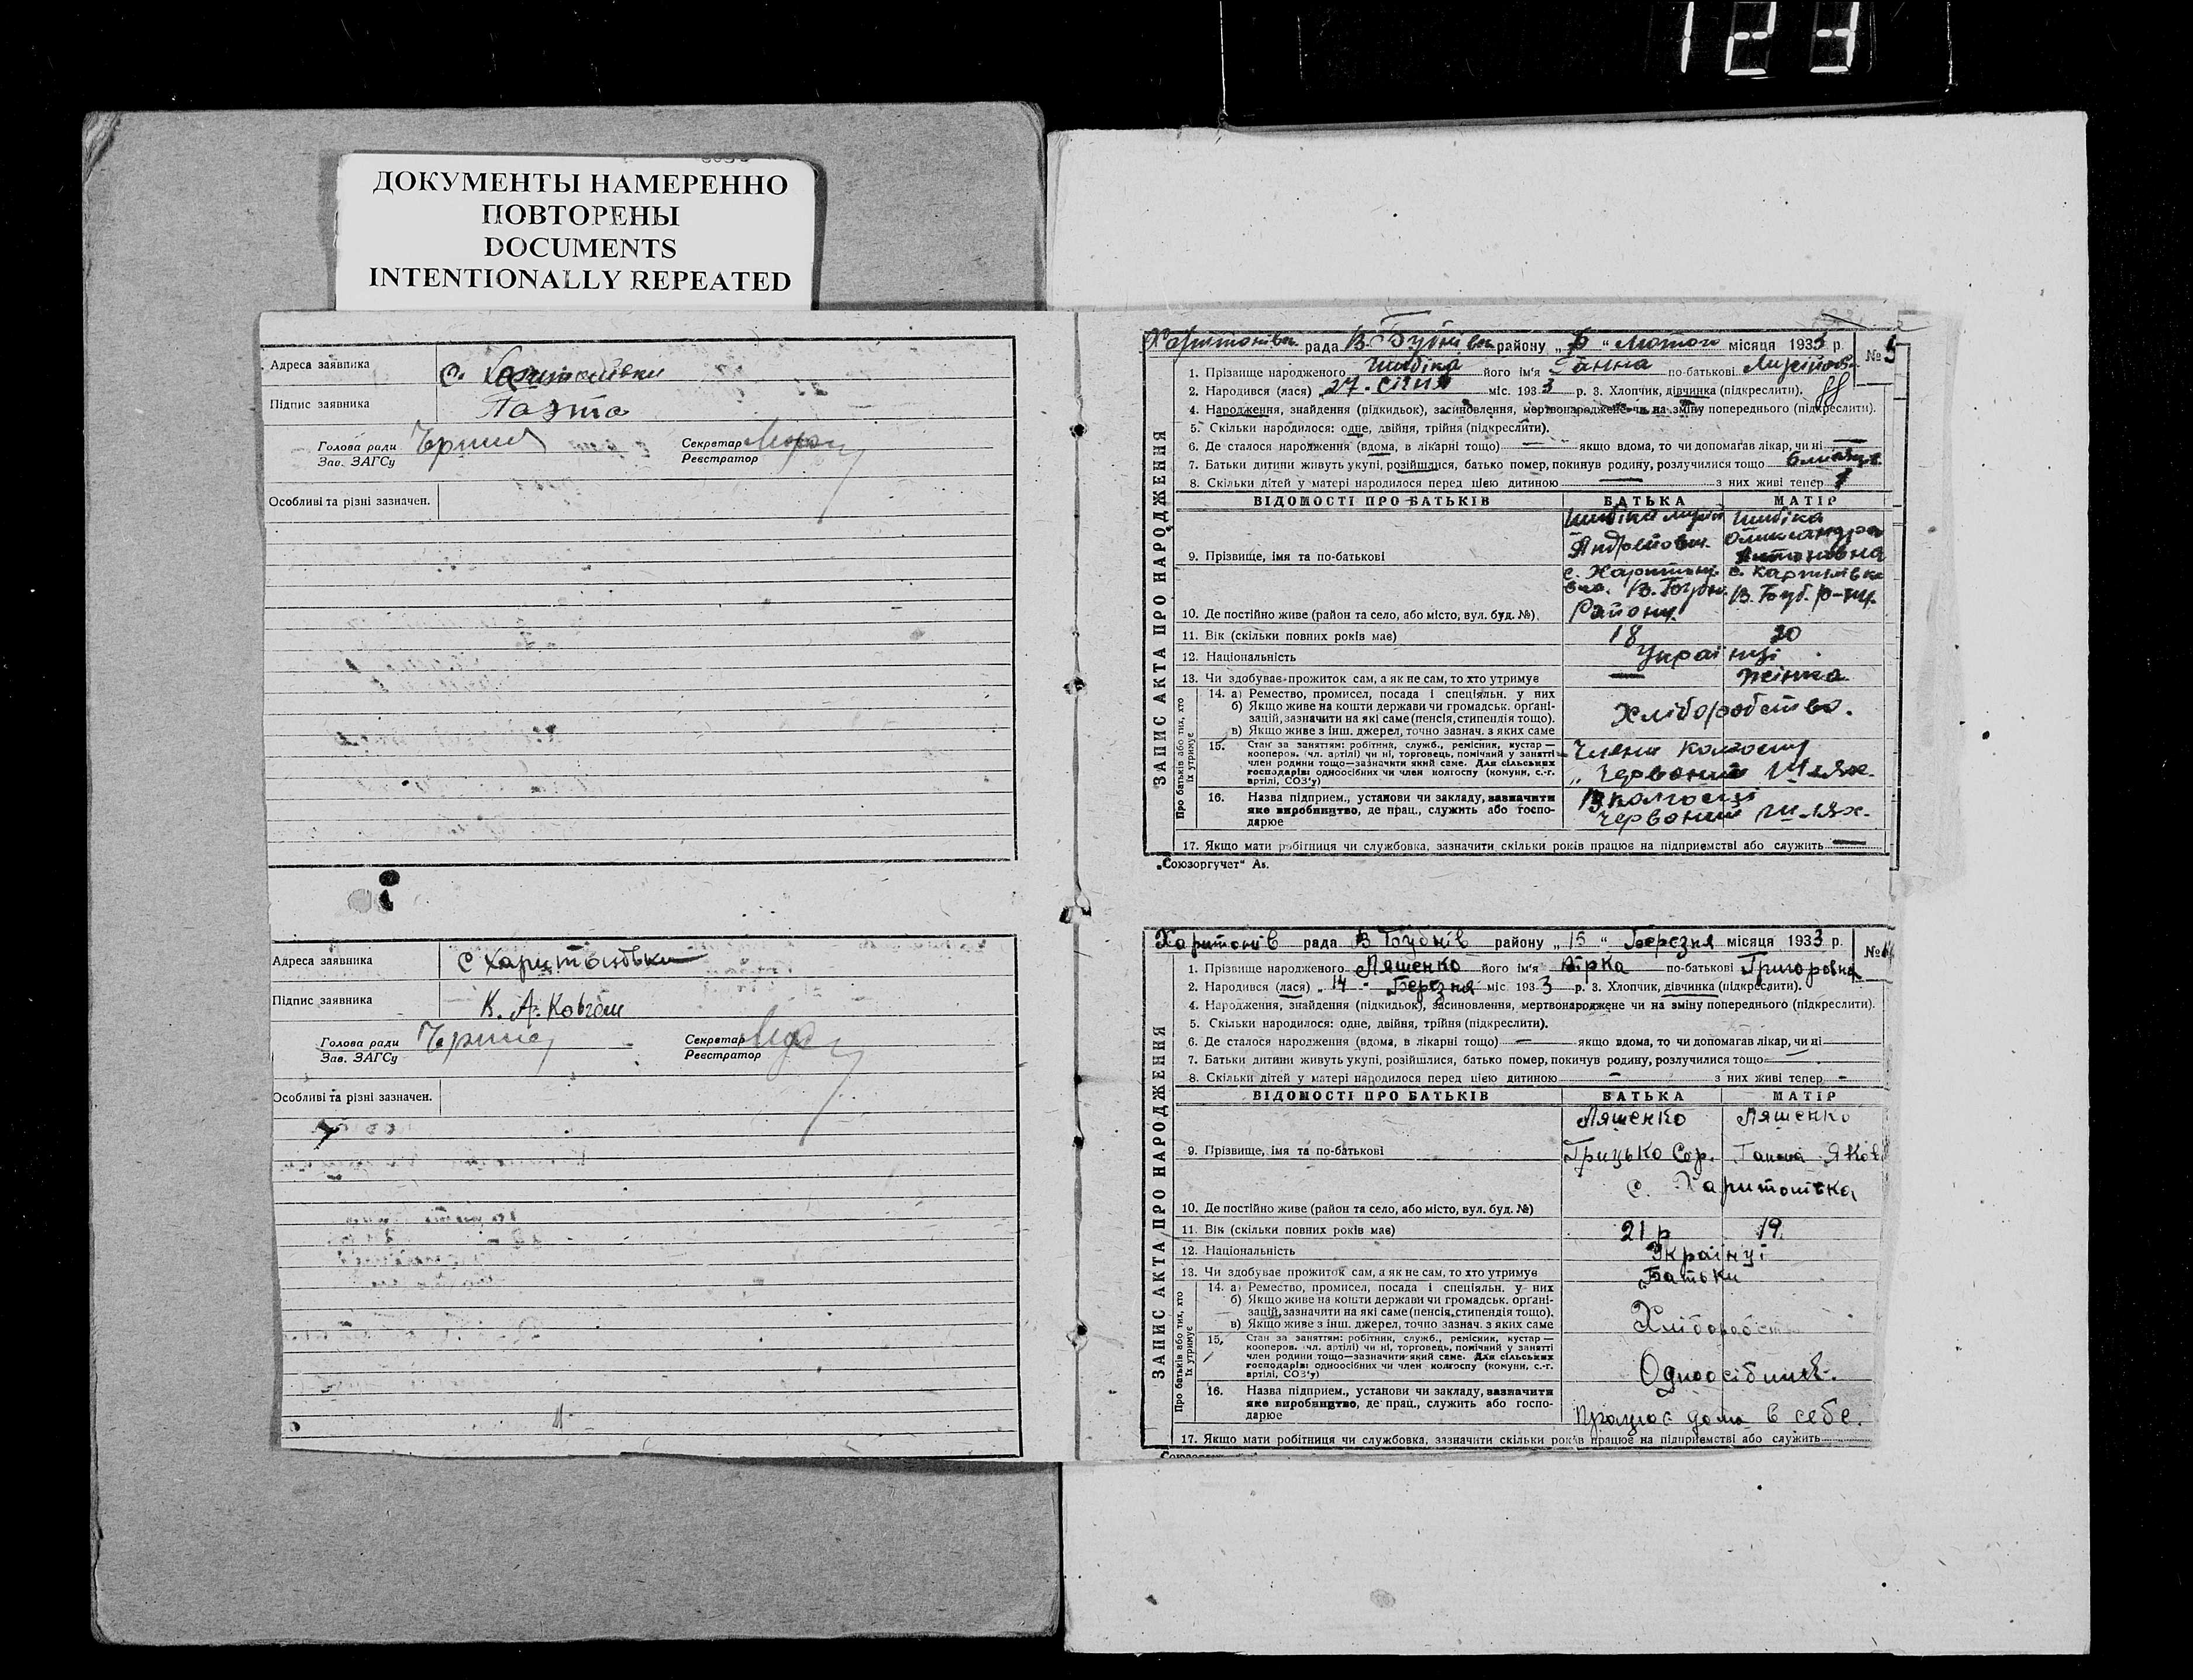 123
ДОКУМЕНТЫ НАМЕРЕННО
ПОВТОРЕНЫ
DOCUMENTS
INTENTIONALLY REPEATED
Адреса заявника с.
Підпис заявника
Голова ради Секретар
Зав. ЗАГСу Реєстратор
Особливі та різні зазначен.
Адреса заявника с Харитонівки
Підпис заявника К. А.
Голова ради Секретар
Зав. ЗАГСу Реєстратор
Особливі та різні зазначен.
ЗАПИС АКТА ПРО НАРОДЖЕННЯ
рада В Бубнівск району „ “ Лютого місяця 1933 р. №
1. Прізвище народженого його ім'я Ганна по-батькові
2. Народився (лася) „27. січня міс. 1933 р. 3. Хлопчик, дівчинка (підкреслити).
4. Народження, знайдення (підкидьок), засиновлення, мертвонароджене чи на зміну попереднього (підкреслити).
5. Скільки народилося: одне, двійня, трійня (підкреслити).
6. Де сталося народження (вдома, в лікарні тощо) — якщо вдома, то чи допомагав лікар, чи ні —
7. Батьки дитини живуть укупі, розійшлися, батько помер, покинув родину, розлучилися тощо
8. Скільки дітей у матері народилося перед цією дитиною — з них живі тепер
ВІДОМОСТІ ПРО БАТЬКІВ БАТЬКА МАТІР
9. Прізвище, імя та по-батькові
Олександра
Антоновна
10. Де постійно живе (район та село, або місто, вул. буд. №).
Району.
11. Вік (скільки повних років має) 18
12. Національність Українці
13. Чи здобуває прожиток сам, а як не сам, то хто утримує —
Про батьків або тих, хто їх утримує
14. а) Ремество, промисел, посада і спеціяльн. у них
б) Якщо живе на кошти держави чи громадськ. органі-
зацій, зазначити на які саме (пенсія, стипендія тощо).
в) Якщо живе з інш. джерел, точно зазнач. з яких саме
Хліборобство.
15. Стан за заняттям: робітник, служб., ремісник, кустар—
кооперов. (чл. артілі) чи ні, торговець, помічний у занятті
член родини тощо—зазначити який саме. Для сільських
господарів: одноосібних чи член колгоспу (комуни, с.-г.
артілі, СОЗ'у)
Члени колгоспу
„Червоний Шлях
16. Назва підприєм., установи чи закладу, зазначити
яке виробництво, де прац., служить або госпо-
дарює
В колгоспі
Червоний Шлях.
17. Якщо мати робітниця чи службовка, зазначити скільки років працює на підприємстві або служить —
„Союзоргучет“
ЗАПИС АКТА ПРО НАРОДЖЕННЯ
Харитонів рада В Бубнів району „15“ Березня місяця 1933 р. №
1. Прізвище народженого Ляшенко його ім'я Вірка по-батькові Григоровна
2. Народився (лася) „14 - Березня міс 1933 р. 3. Хлопчик, дівчинка (підкреслити).
4. Народження, знайдення (підкидьок), засиновлення, мертвонароджене чи на зміну попереднього (підкреслити).
5. Скільки народилося: одне, двійня, трійня (підкреслити).
6. Де сталося народження (вдома, в лікарні тощо) — якщо вдома, то чи допомагав лікар, чи ні
7. Батьки дитини живуть укупі, розійшлися, батько помер, покинув родину, розлучилися тощо —
8. Скільки дітей у матері народилося перед цією дитиною — з них живі тепер —
ВІДОМОСТІ ПРО БАТЬКІВ БАТЬКА МАТІР
Ляшенко Ляшенко
9. Прізвище, імя та по-батькові Грицько Сер. Ганна Яков
с. Харитонівка
10. Де постійно живе (район та село, або місто, вул. буд. №)
11. Вік (скільки повних років має) 21 р 19.
12. Національність Українці
13. Чи здобуває прожиток сам, а як не сам, то хто утримує Батьки
Про батьків або тих, хто їх утримує
14. а) Ремество, промисел, посада і спеціяльн. у них
б) Якщо живе на кошти держави чи громадськ. органі-
зацій, зазначити на які саме (пенсія, стипендія тощо).
в) Якщо живе з інш. джерел, точно зазнач. з яких саме
Хліборобство
15. Стан за заняттям: робітник, служб., ремісник, кустар—
кооперов. чл. артілі) чи ні, торговець, помічний у занятті
член родини тощо—зазначити який саме. Для сільських
господарів: одноосібних чи член колгоспу (комуни, с.-г.
артілі, СОЗ'у)
16. Назва підприєм., установи чи закладу, зазначити
яке виробництво, де прац., служить або госпо-
дарює
Працює дома в себе.
17. Якщо мати робітниця чи службовка, зазначити скільки років працює на підприємстві або служить